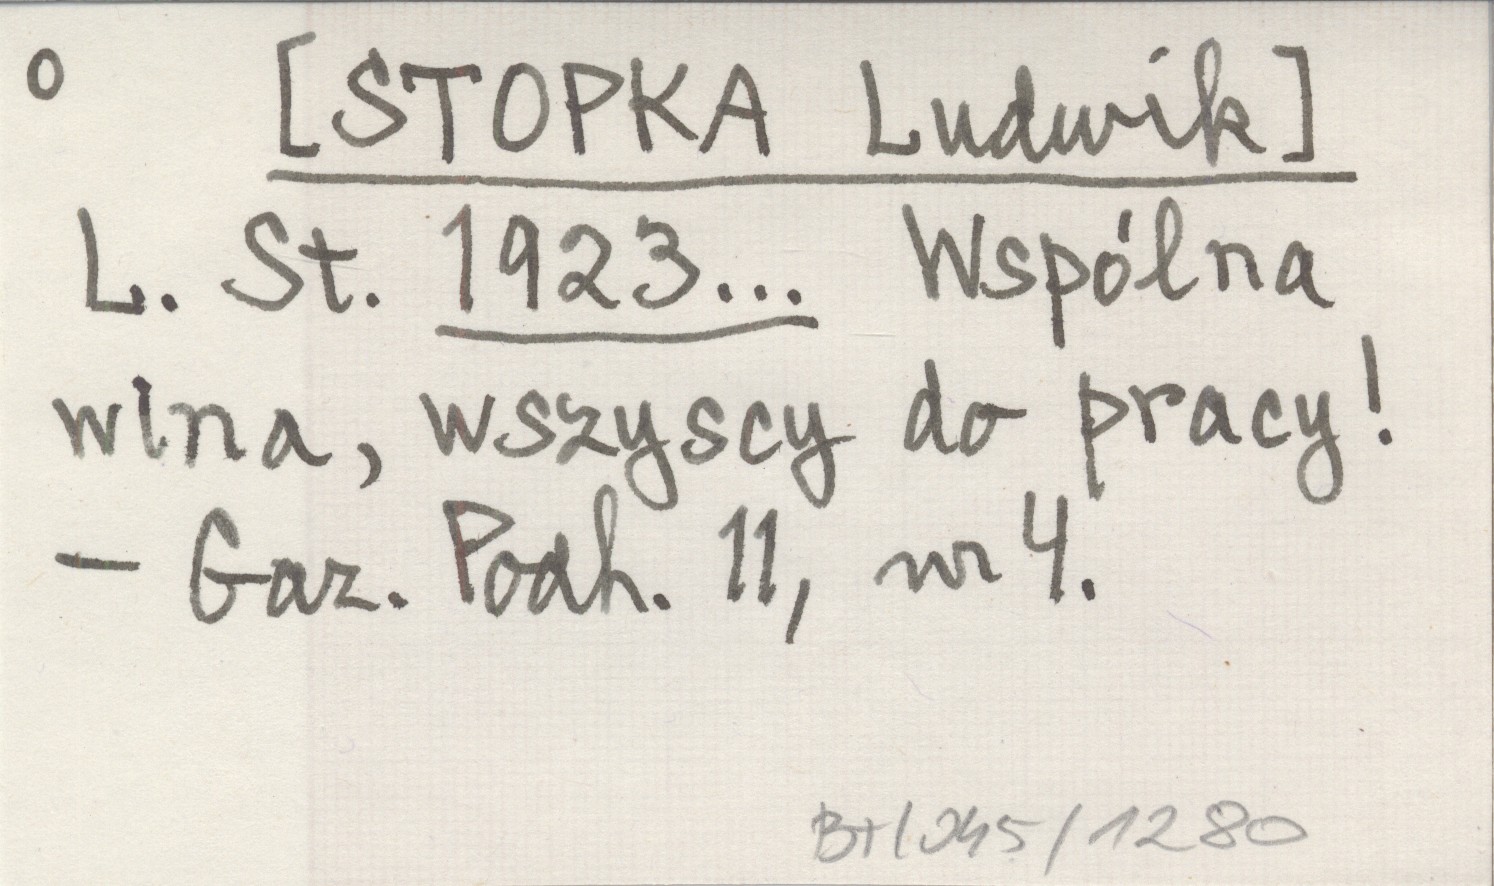 o [STOPKA Ludwik]
L. St. 1923... Wspólna
wina, wszyscy do pracy!
– Gaz. Podh. 11, nr 4.
BT/045/1280